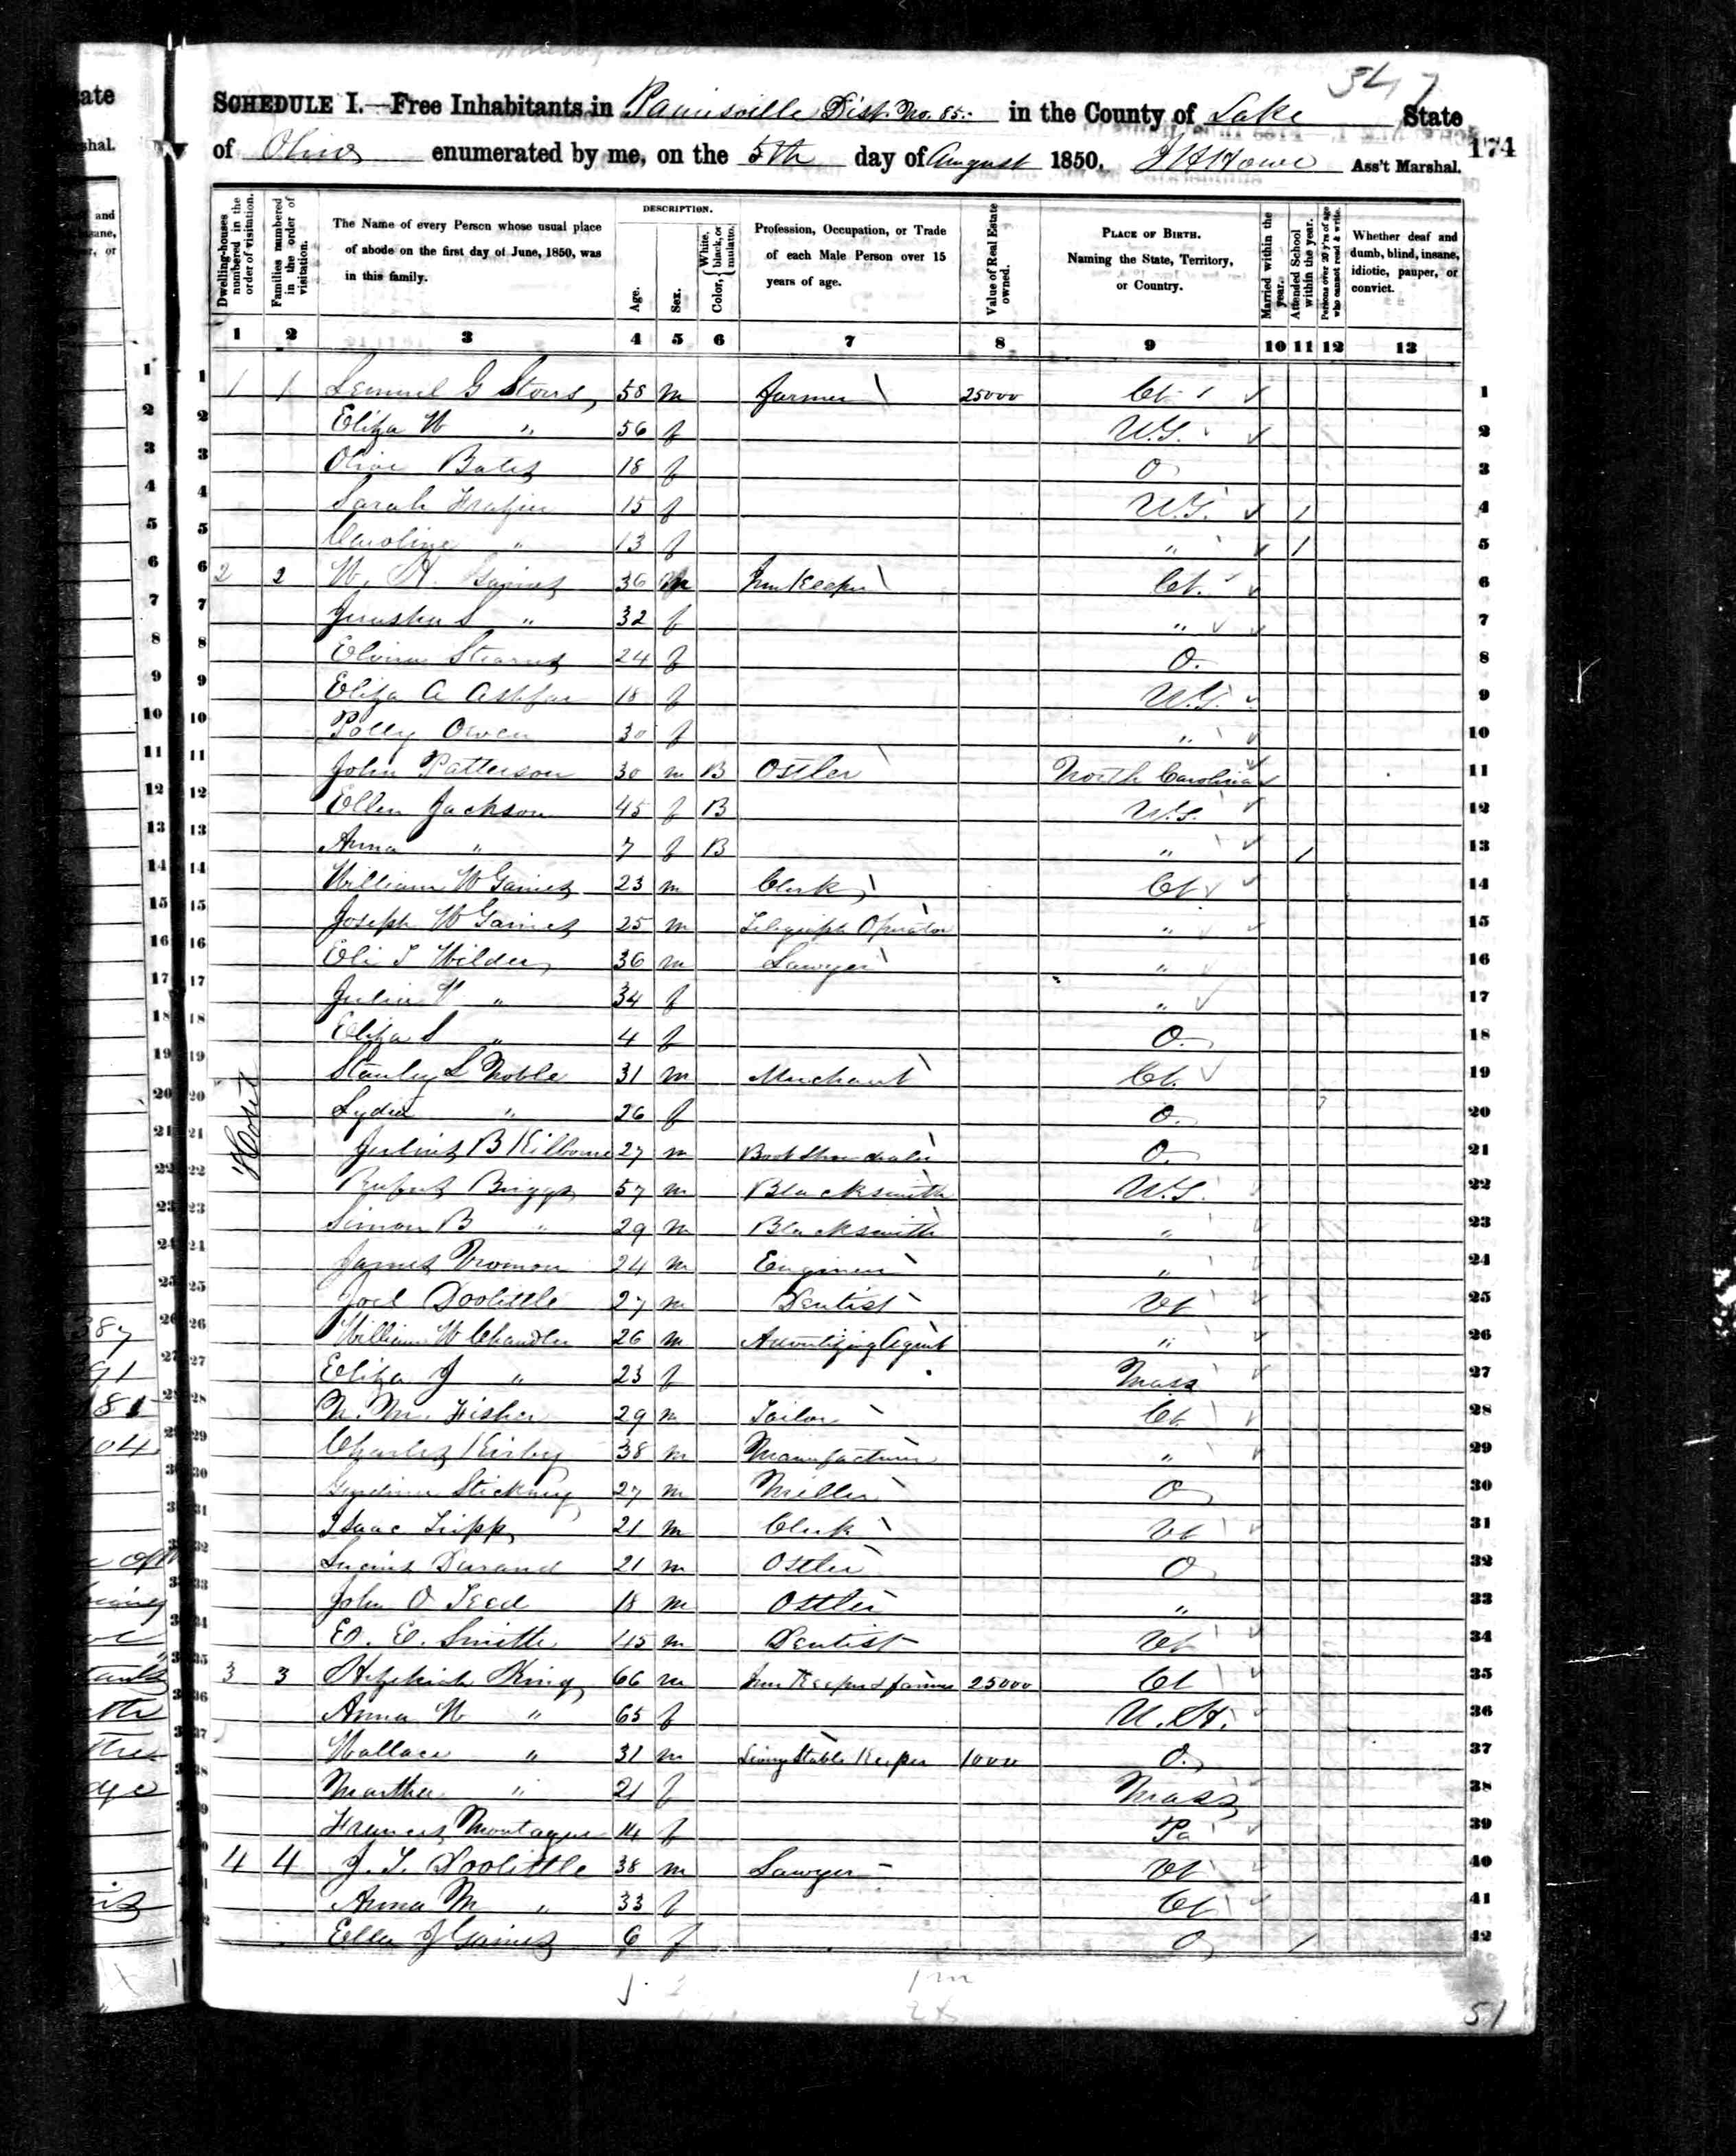 347
SCHEDULE I.—Free Inhabitants in Painesville Dist. No. 85. in the County of Lake State
of Ohio enumerated by me, on the 5th day of August 1850. J H Howe Ass't Marshal. 174
Dwelling-houses numbered in the order of visitation. Families numbered in the order of visitation. The Name of every Person whose usual place of abode on the first day of June, 1850, was in this family. DESCRIPTION. Age. Sex. Color, { White, black, or mulatto. Profession, Occupation, or Trade of each Male Person over 15 years of age. Value of Real Estate owned. PLACE OF BIRTH. Naming the State, Territory, or Country. Married within the year. Attended School within the year. Persons over 20 y'rs of age who cannot read & write. Whether deaf and dumb, blind, insane, idiotic, pauper, or convict.
1 2 3 4 5 6 7 8 9 10 11 12 13
1 1 1 Lemuel G Storrs 58 m farmer 25000 Ct 1
2 Eliza W " 56 f 2
3 Olive Bates 18 f O 3
4 Sarah Frazier 15 f 1 4
5 Caroline " 13 f " 1 5
6 2 2 W. H. Gaines 36 m Inn Keeper Ct. 6
7 Jerusha S " 32 f " 7
8 Elvira Stearns 24 f O. 8
9 Eliza A 18 f 9
10 Polly Owen 30 f " 10
11 John Patterson 30 m B Ostler North Carolina 11
12 Ellen Jackson 45 f B 12
13 Anna " 7 f B " 1 13
14 William W Gaines 23 m Clerk Ct 14
15 Joseph W Gaines 25 m Telegraph Operator " 15
16 Eli T Wilder 36 m Lawyer " 16
17 Julia W " 34 f " 17
18 Eliza S " 4 f O. 18
19 Stanley L Noble 31 m Merchant Ct. 19
20 Lydia " 26 f O. 20
Hotel
21 Julius B Kilbourne 27 m Boot Shoe dealer O. 21
22 Rufus Briggs 57 m Blacksmith 22
23 Simon B " 29 m Blacksmith " 23
24 James Vroman 24 m Engineer " 24
25 Joel Doolittle 27 m Dentist Vt 25
26 William W Chandler 26 m Advertizing Agent " 26
27 Eliza J " 23 f Mass 27
28 N. M. Fisher 29 m Tailor Ct. 28
29 Charles Kirby 38 m Manufacturer " 29
30 Stickney 27 m Miller O 30
31 Isaac Tripp 21 m Clerk Vt 31
32 Lucius Durand 21 m Ostler O 32
33 John O Teed 18 m Ostler " 33
34 E. E. Smith 45 m Dentist Vt 34
35 3 3 Hezekiah King 66 m Inn Keeper & farmer 25000 Ct 35
36 Anna W " 65 f N. H. 36
37 Wallace " 31 m Livery Stable Keeper 1000 O. 37
38 Martha " 21 f Mass 38
39 Frances Montague 14 f Pa 39
40 4 4 J. T. Doolittle 38 m Lawyer Vt 40
41 Anna M " 33 f Ct 41
42 Ella J Gaines 6 f O 1 42
51